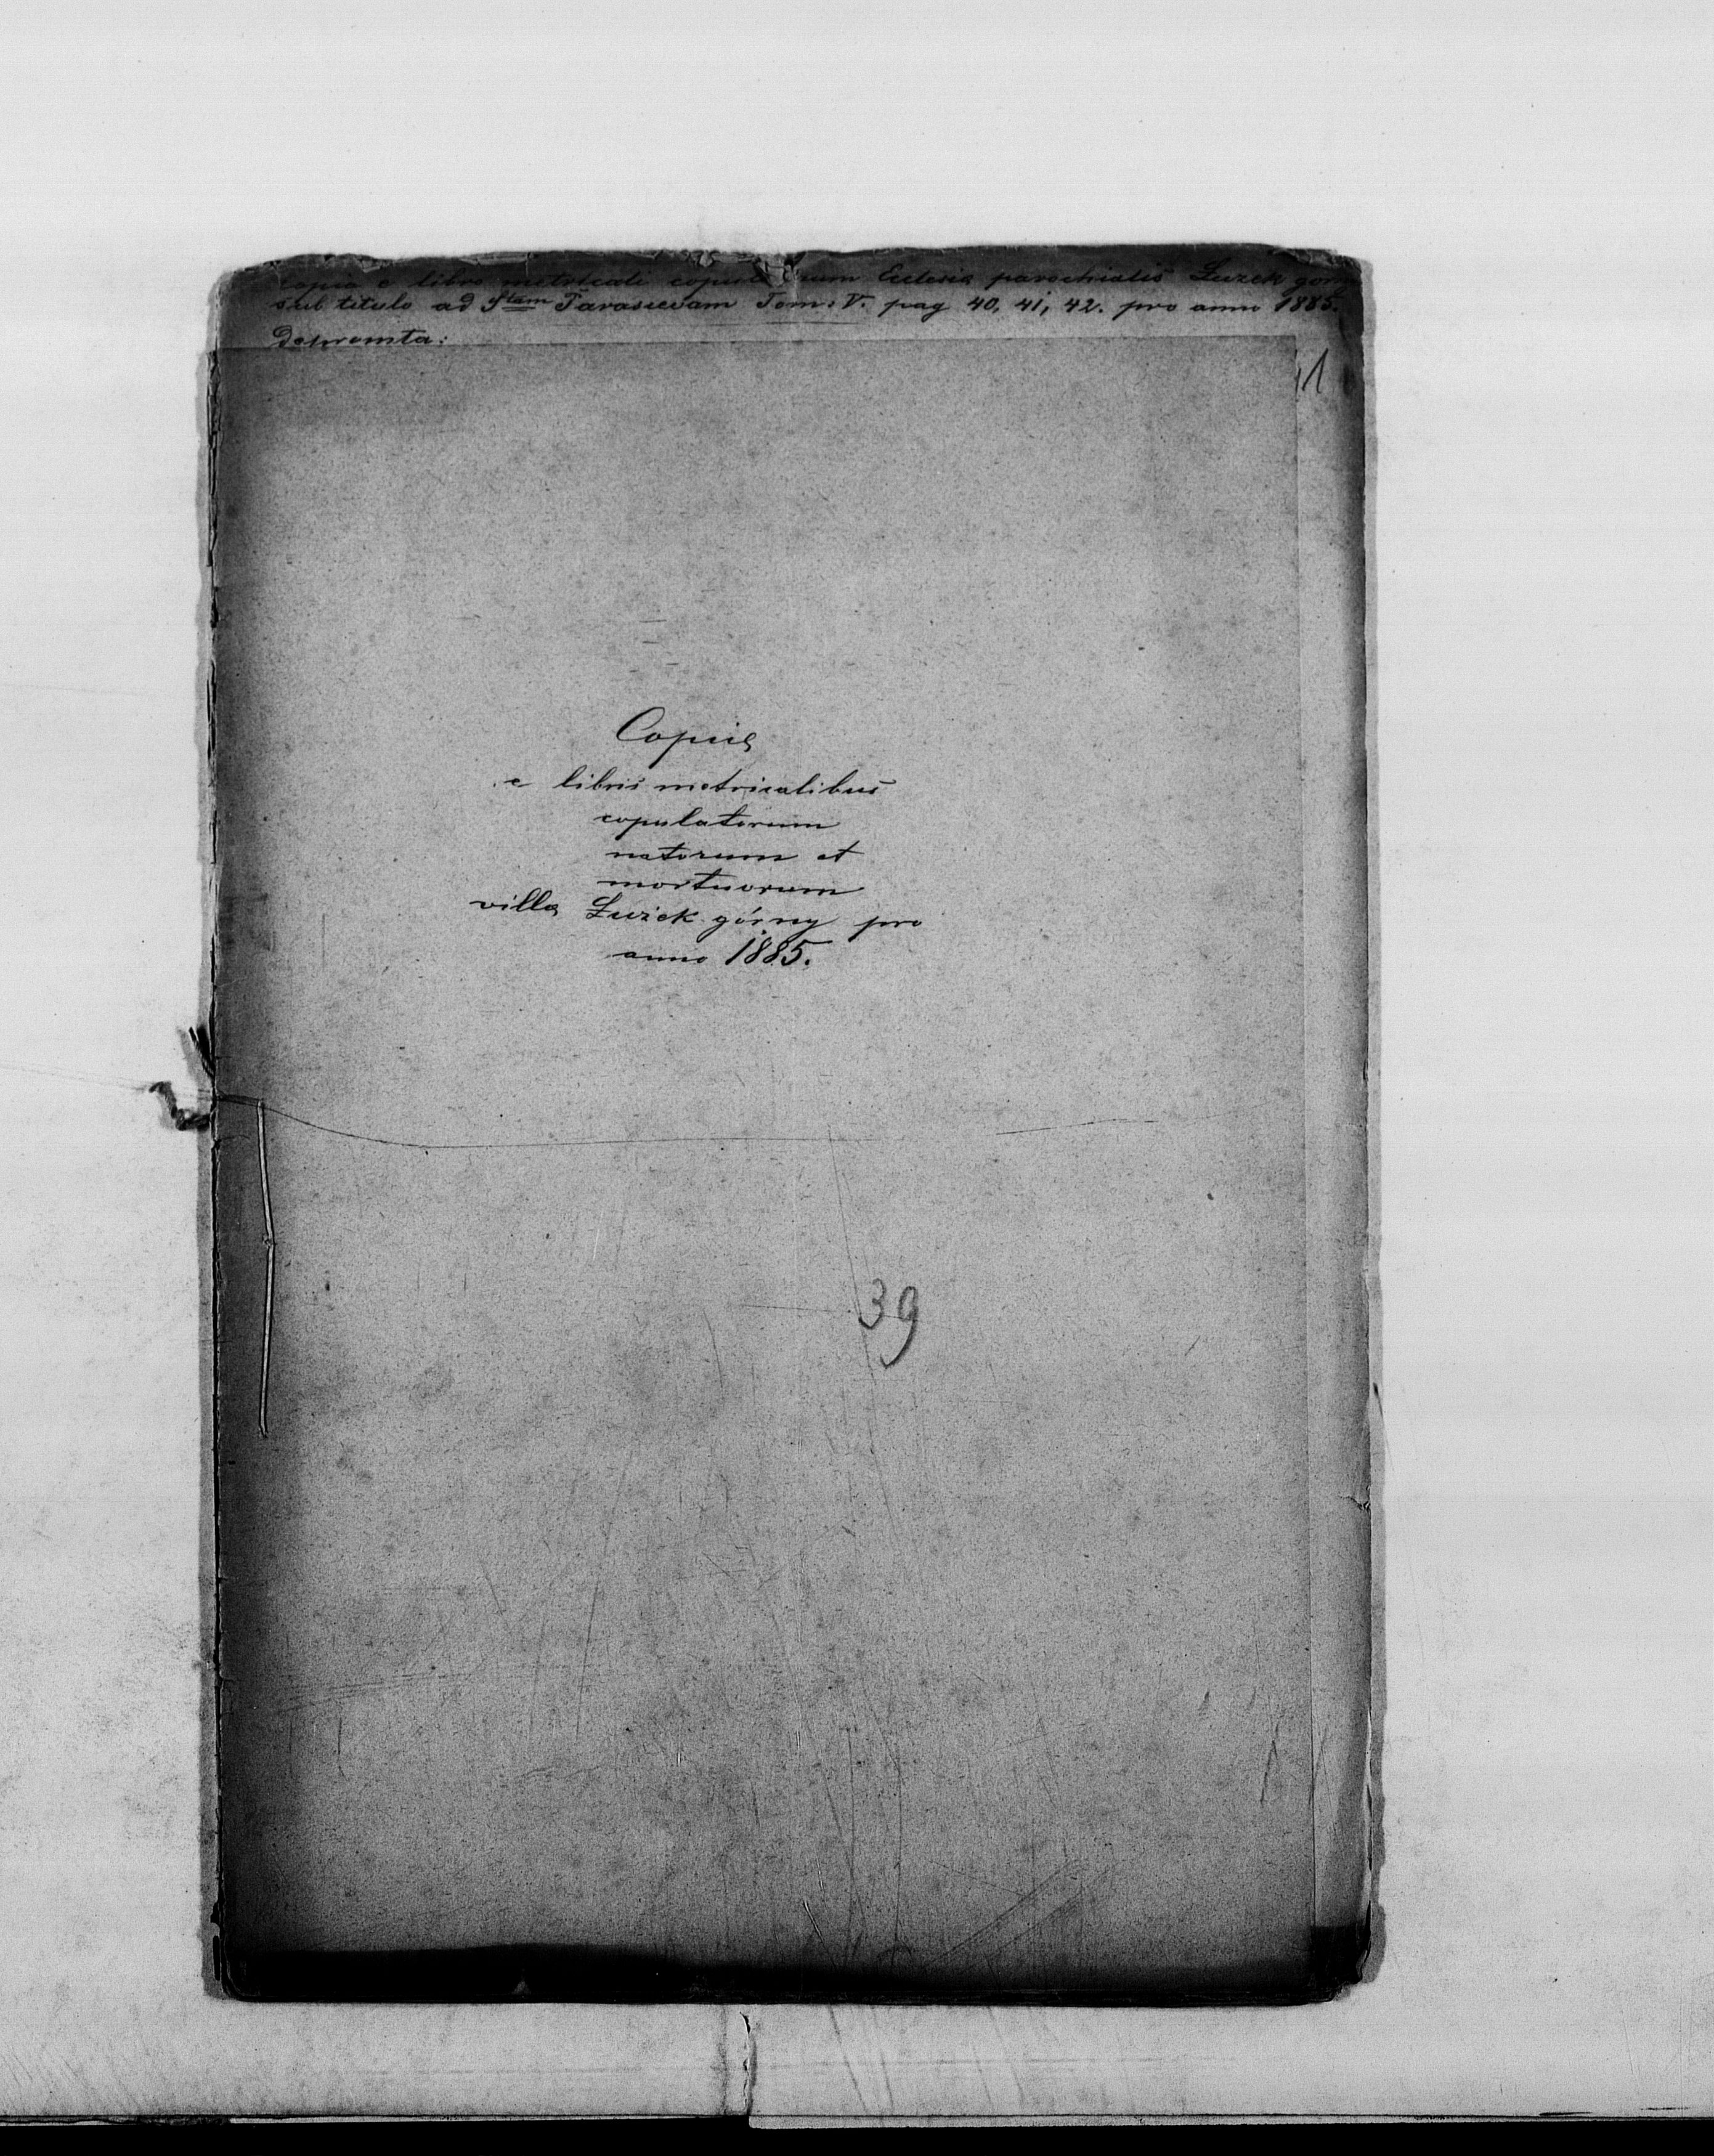 Copia e libro metricali copul rum Eclesiæ parochialis Łuzek gorn
sub titulo ad Stam Parascevam Tom: V. pag 40, 41, 42. pro anno 1885.
Depromta:
41
Copiæ
e libris metricalibus
copulatorum
natorum et
mortuorum
villæ Łużek górny pro
anno 1885.
39